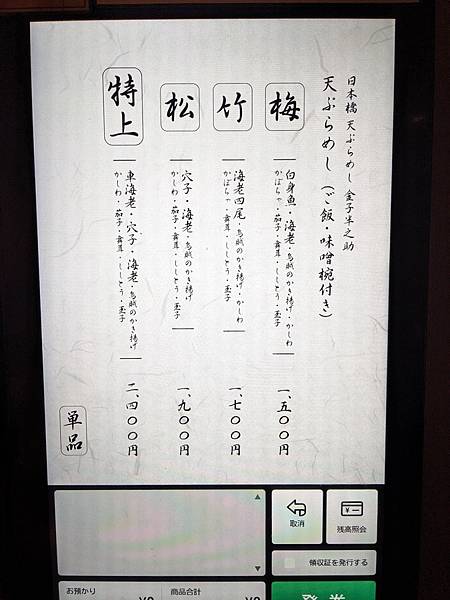 日本橋 天ぷらめし 金子半之助
天ぷらめし(ご飯・味噌椀付き)
梅
白身魚・海老・烏賊のかき揚げ・かしわ
かぼちゃ・茄子・舞茸・ししとう・玉子
一、五〇〇円
竹
海老四尾・烏賊のかき揚げ・かしわ
かぼちゃ・茄子・舞茸・ししとう・玉子
一、七〇〇円
松
穴子・海老・烏賊のかき揚げ
かしわ・茄子・舞茸・ししとう・玉子
一、九〇〇円
特上
車海老・穴子・海老・烏賊のかき揚げ
かしわ・茄子・舞茸・ししとう・玉子
二、四〇〇円
単品
取消
残高照会
領収証を発行する
お預かり
¥0
商品合計
¥0
発券